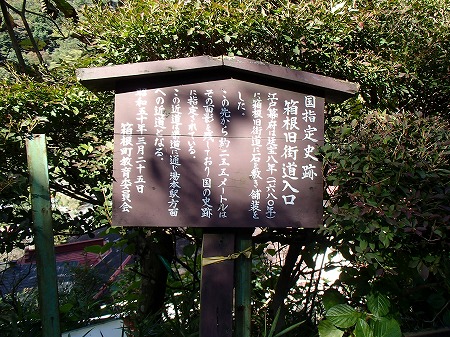 国指定史跡
箱根旧街道入口
江戸幕府は延宝八年(一六八〇年)
に箱根旧街道に石を敷き舗装を
した。
この先から約二五五メートルは
その面影を残しており国の史跡
に指定されている。
この近道は県道に通じ湯本駅方面
への近道となる。
昭和六十年三月二十五日
箱根町教育委員会